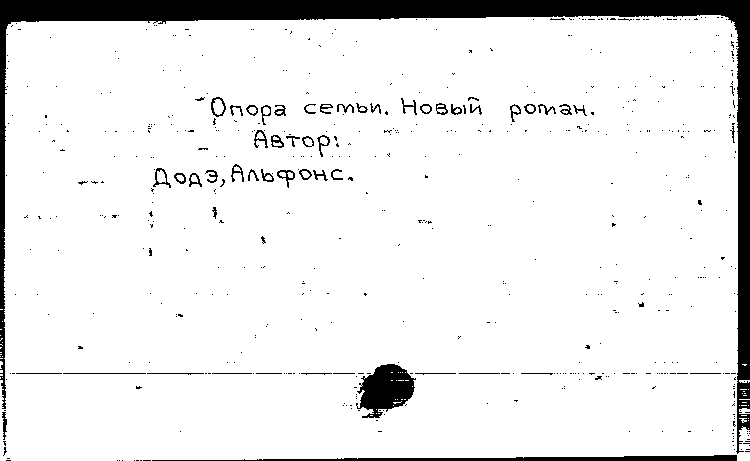 Опора семьи. Новый роман.
Автор:
Додэ, Альфонс.